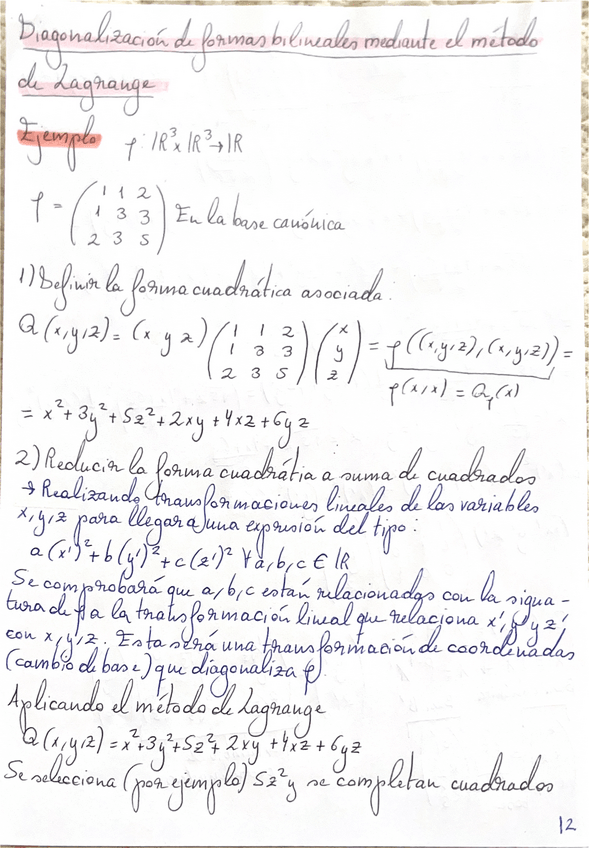 Diagonalización de formas bilineales mediante el método
de Lagrange
Ejemplo φ: ℝ³×ℝ³→ℝ
φ = (1 1 2; 1 3 3; 2 3 5) En la base canónica
1) Definir la forma cuadrática asociada:
Q(x,y,z) = (x y z) (1 1 2; 1 3 3; 2 3 5) (x; y; z) = φ((x,y,z),(x,y,z)) =
φ(x,x) = Qφ(x)
= x² + 3y² + 5z² + 2xy + 4xz + 6yz
2) Reducir la forma cuadrátia a suma de cuadrados
→ Realizando transformaciones lineales de las variables
x,y,z para llegar a una expresión del tipo:
a(x')² + b(y')² + c(z')² ∀a,b,c ∈ ℝ
Se comprobará que a,b,c están relacionados con la signa-
tura de φ a la transformación lineal que relaciona x', y' y z'
con x,y,z. Esta será una transformación de coordenadas
(cambio de base) que diagonaliza φ.
Aplicando el método de Lagrange
Q(x,y,z) = x² + 3y² + 5z² + 2xy + 4xz + 6yz
Se selecciona (por ejemplo) 5z² y se completan cuadrados
12